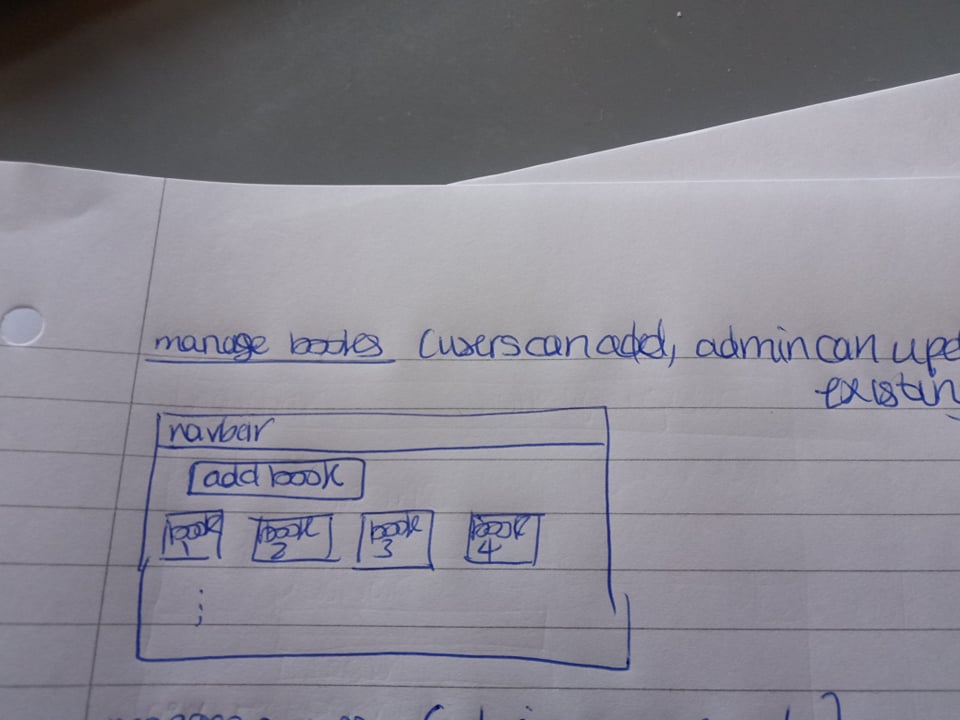 manage books (users can add, admin can upd
existin
navbar
add book
book 1 book 2 book 3 book 4